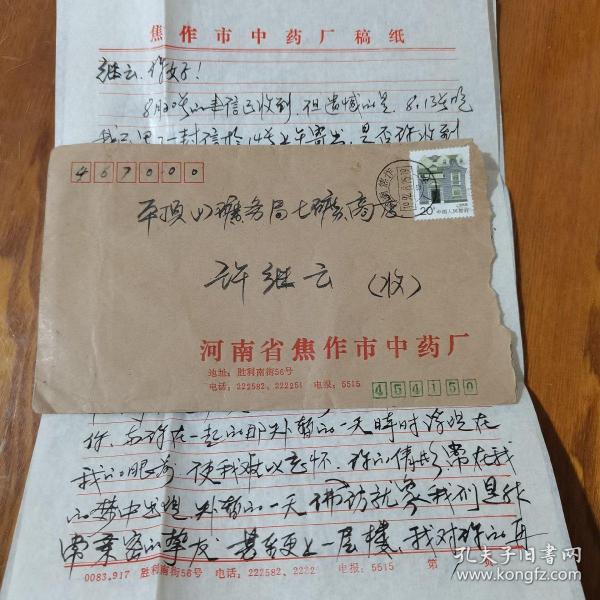 焦作市中药厂稿纸
继云,你好!
8月20号的来信已收到,但遗憾的是,8.13号晚
467000
20分
中国人民邮政
平顶山矿务局七矿商店
许继云(收)
河南省焦作市中药厂
地址:胜利南街56号
电话:222582、222251 电报:5515
454150
你,与你在一起的那短暂的一天时时浮现在
我的眼前,使我难以忘怀.你的倩影常在我
的梦中出现,短暂的一天仿访就象我们是非
常亲密的挚友,甚至更上一层楼.我对你的
0083.917 胜利南街56号 电话:222582、2222 电报:5515 第 页
孔夫子旧书网
www.kongfz.com